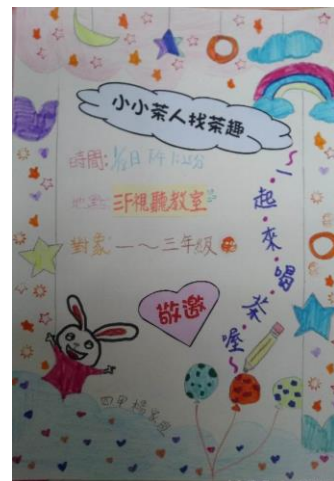 小小茶人找茶趣
時間:
地點: 3F視聽教室
對象: 一~三年級
~一起來喝茶喔~
敬邀